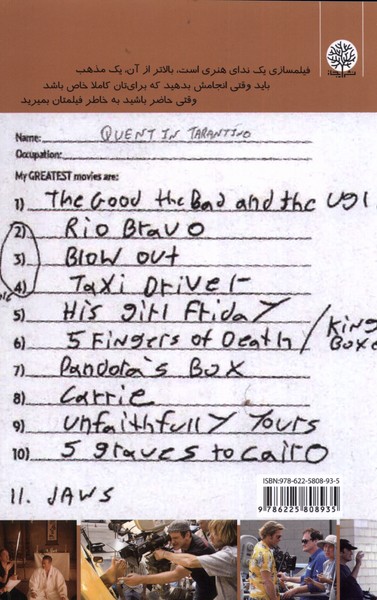 فیلمسازی یک ندای هنری است، بالاتر از آن، یک مذهب
باید وقتی انجامش بدهید که برای‌تان کاملا خاص باشد
وقتی حاضر باشید به خاطر فیلمتان بمیرید
Name: QUENTIN TARANTINO
Occupation:
My GREATEST movies are:
1) The Good the Bad and the Ugl
2) Rio Bravo
3) Blow out
4) Taxi Driver
5) His girl Friday
6) 5 Fingers of Death / King Boxe
7) Pandora's Box
8) Carrie
9) unfaithfully yours
10) 5 graves to Cairo
11. JAWS
ISBN:978-622-5808-93-5
9 786225 808935